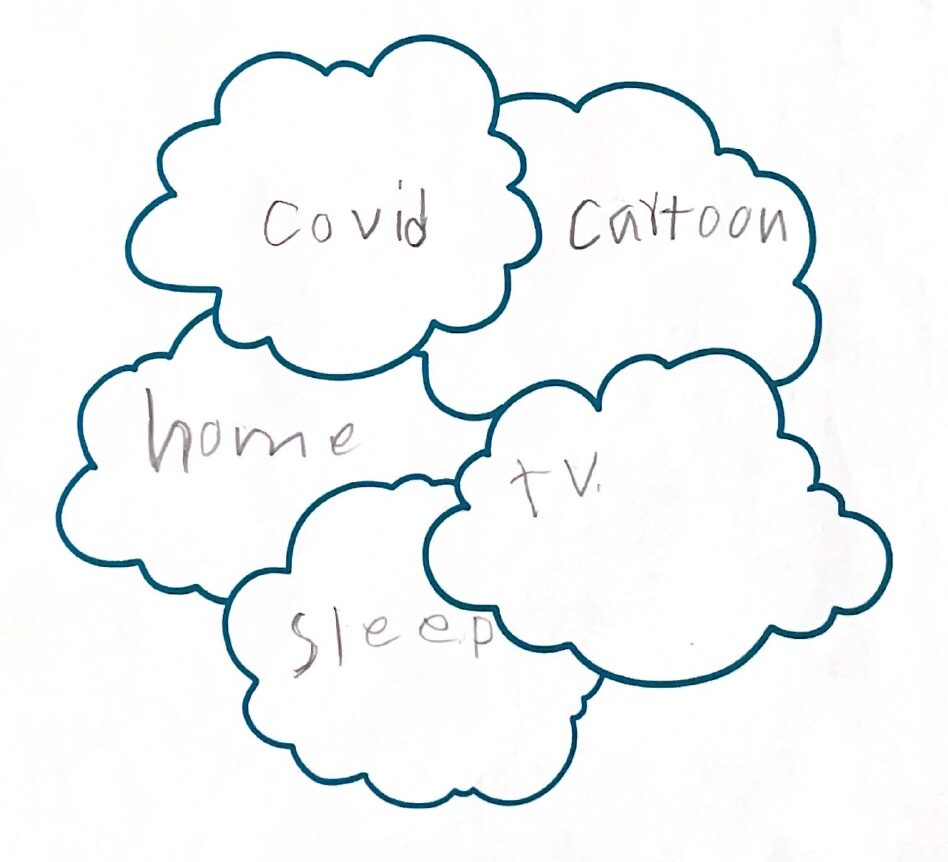 covid
cartoon
home
tv.
sleep